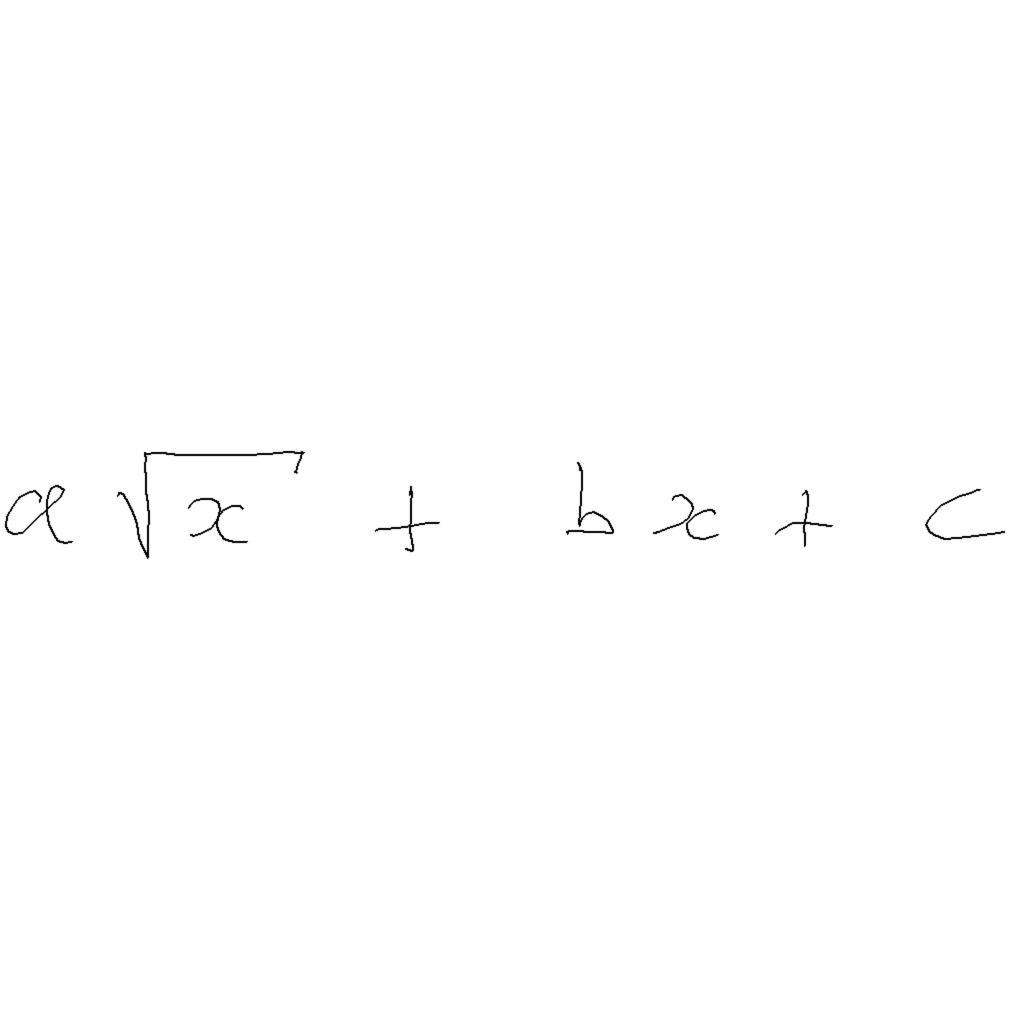 a√x + bx + c